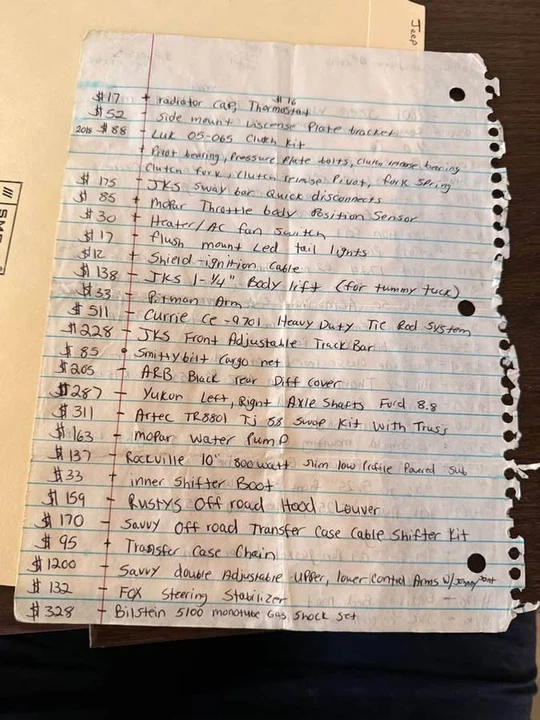 Jeep
$16
$17 + radiator cap, Thermostat
$52 side mount License Plate bracket
2018 $88 - LUK 05-065 Clutch Kit
+ Pivot bearing, Pressure Plate bolts, Clutch release bearing
Clutch fork, Clutch release Pivot, fork spring
$175 - JKS Sway bar Quick disconnects
$85 + Mopar Throttle body Position Sensor
$30 + Heater/AC fan switch
$17 - flush mount Led tail lights
$12 + Shield-ignition Cable
$138 - JKS 1-1/4" Body lift (for tummy tuck)
$33 - Pitman Arm
$511 - Currie Ce-9701 Heavy Duty Tie Rod System
$228 - JKS Front Adjustable Track Bar
$85 • Smittybilt Cargo net
$205 - ARB Black rear Diff cover
$287 - Yukon Left, Right Axle Shafts Ford 8.8
$311 - Artec TR8801 Tj 8.8 Swap Kit With Truss
$163 - mopar Water Pump
$137 - Rockville 10" 800watt slim low Profile Powered Sub
$33 + inner Shifter Boot
$159 - Rustys Off road Hood Louver
$170 - Savvy Off road Transfer Case Cable Shifter Kit
$95 + Transfer Case Chain
$1200 - Savvy double Adjustable Upper, lower Control Arms W/
$132 - FOX Steering Stabilizer
$328 - Bilstein 5100 monotube Gas Shock Set